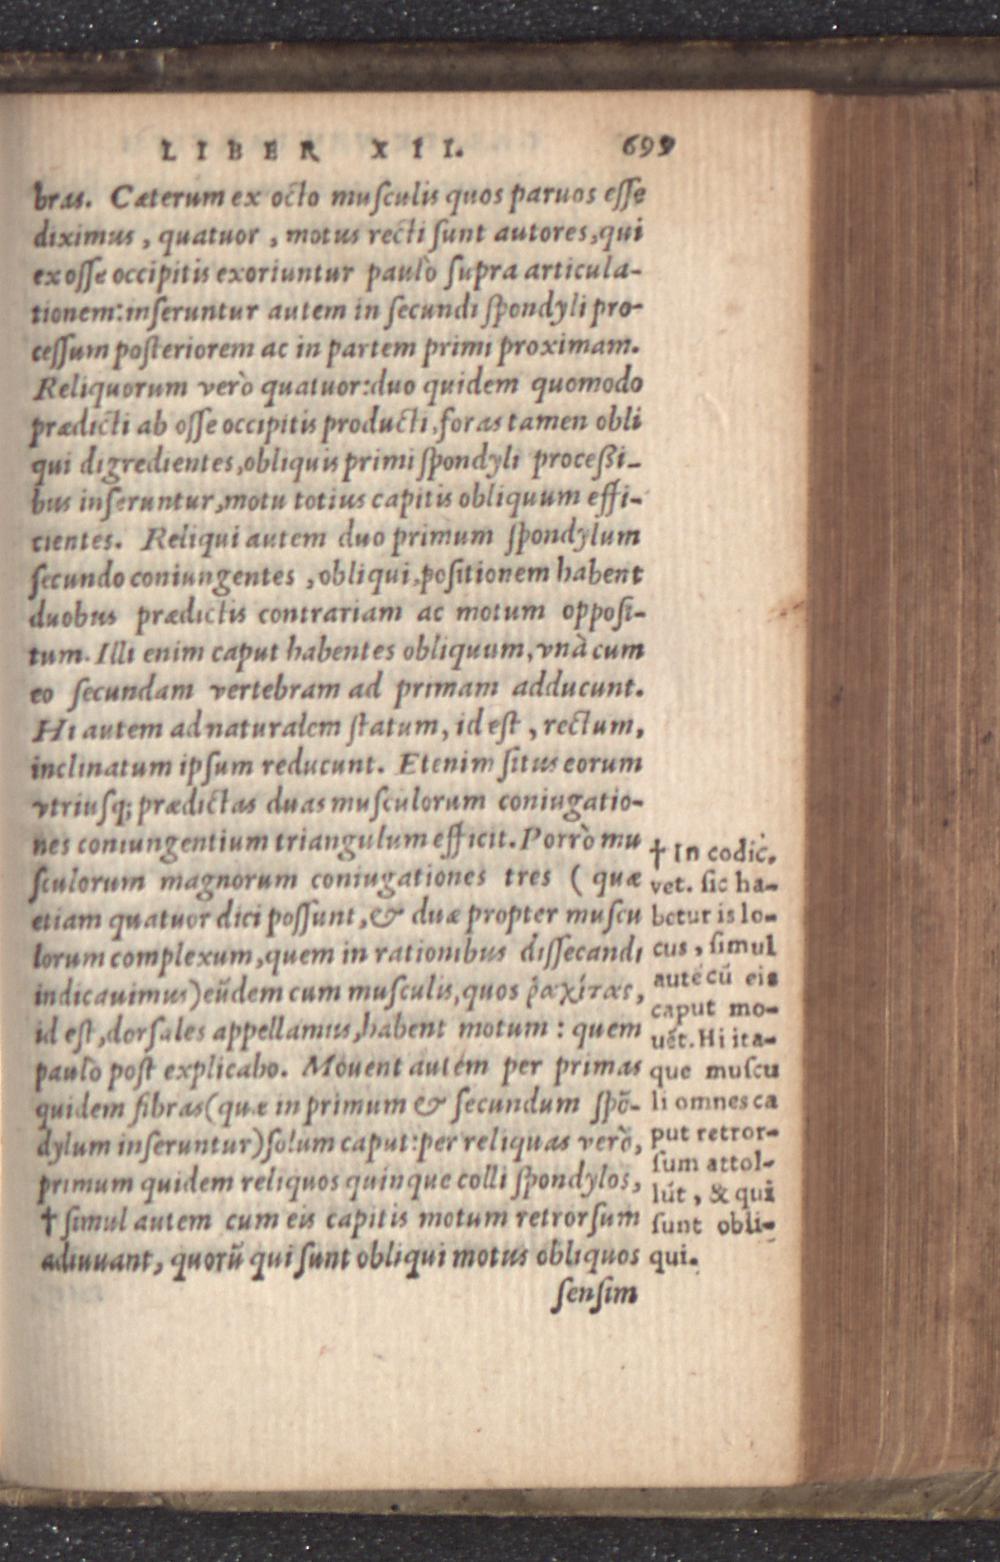 LIBER XII. 699
bras. Cæterum ex octo musculis quos paruos esse
diximus, quatuor, motus recti sunt autores, qui
ex osse occipitis exoriuntur paulò supra articula-
tionem: inseruntur autem in secundi spondyli pro-
cessum posteriorem ac in partem primi proximam.
Reliquorum verò quatuor: duo quidem quomodo
prædicti ab osse occipitis producti, foras tamen obli
qui digredientes, obliquis primi spondyli processi-
bus inseruntur, motu totius capitis obliquum effi-
cientes. Reliqui autem duo primum spondylum
secundo coniungentes, obliqui, positionem habent
duobus prædictis contrariam ac motum opposi-
tum. Illi enim caput habentes obliquum, vnà cum
eo secundam vertebram ad primam adducunt.
Hi autem ad naturalem statum, id est, rectum,
inclinatum ipsum reducunt. Etenim situs eorum
vtriusq; prædictas duas musculorum coniugatio-
nes coniungentium triangulum efficit. Porrò mu
sculorum magnorum coniugationes tres ( quæ
etiam quatuor dici possunt, & duæ propter muscu
lorum complexum, quem in rationibus dissecandi
indicauimus) eūdem cum musculis, quos ῥαχίτας,
id est, dorsales appellamus, habent motum: quem
paulò post explicabo. Mouent autem per primas
quidem fibras (quæ in primum & secundum spō-
dylum inseruntur) solum caput: per reliquas verò,
primum quidem reliquos quinque colli spondylos,
† simul autem cum eis capitis motum retrorsum
adiuuant, quorū qui sunt obliqui motus obliquos
sensim
† In codic.
vet. sic ha-
betur is lo-
cus, simul
autē cū eis
caput mo-
uēt. Hi ita-
que muscu
li omnes ca
put retror-
sum attol-
lūt, & qui
sunt obli-
qui.